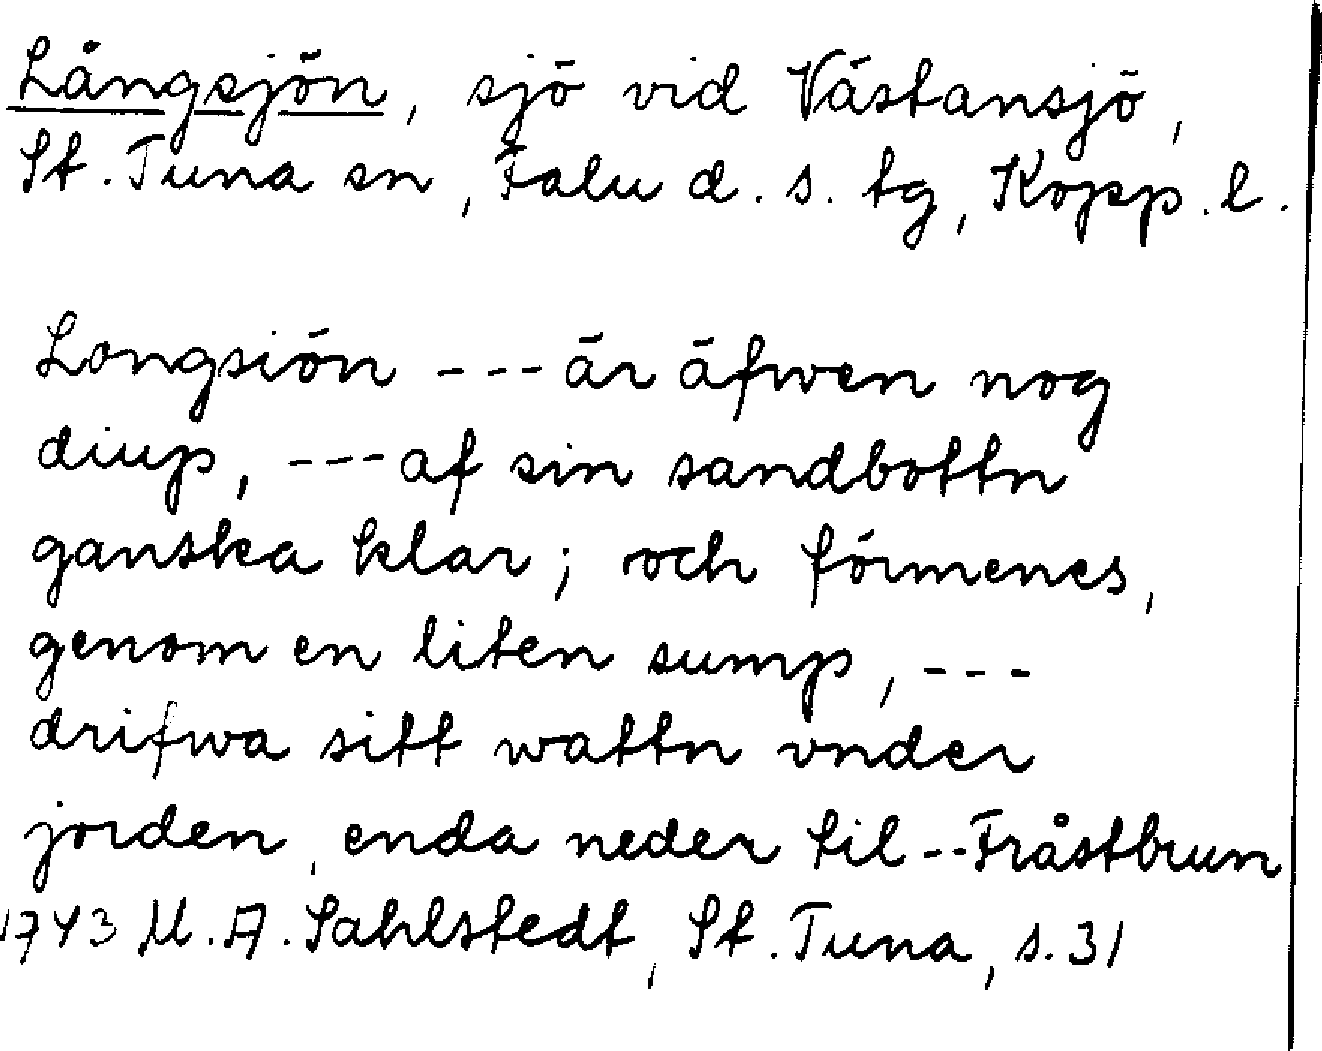 Långsjön, sjö vid Västansjö,
St. Tuna sn, Falu d. s. tg, Kopp. l.
Longsiön --- är äfwen nog
diup, --- af sin sandbottn
ganska klar; och förmenes,
genom en liten sump, ---
drifwa sitt wattn vnder
jorden, enda neder til -- Fråstbrun
1743 M. A. Sahlstedt, St. Tuna, s. 31